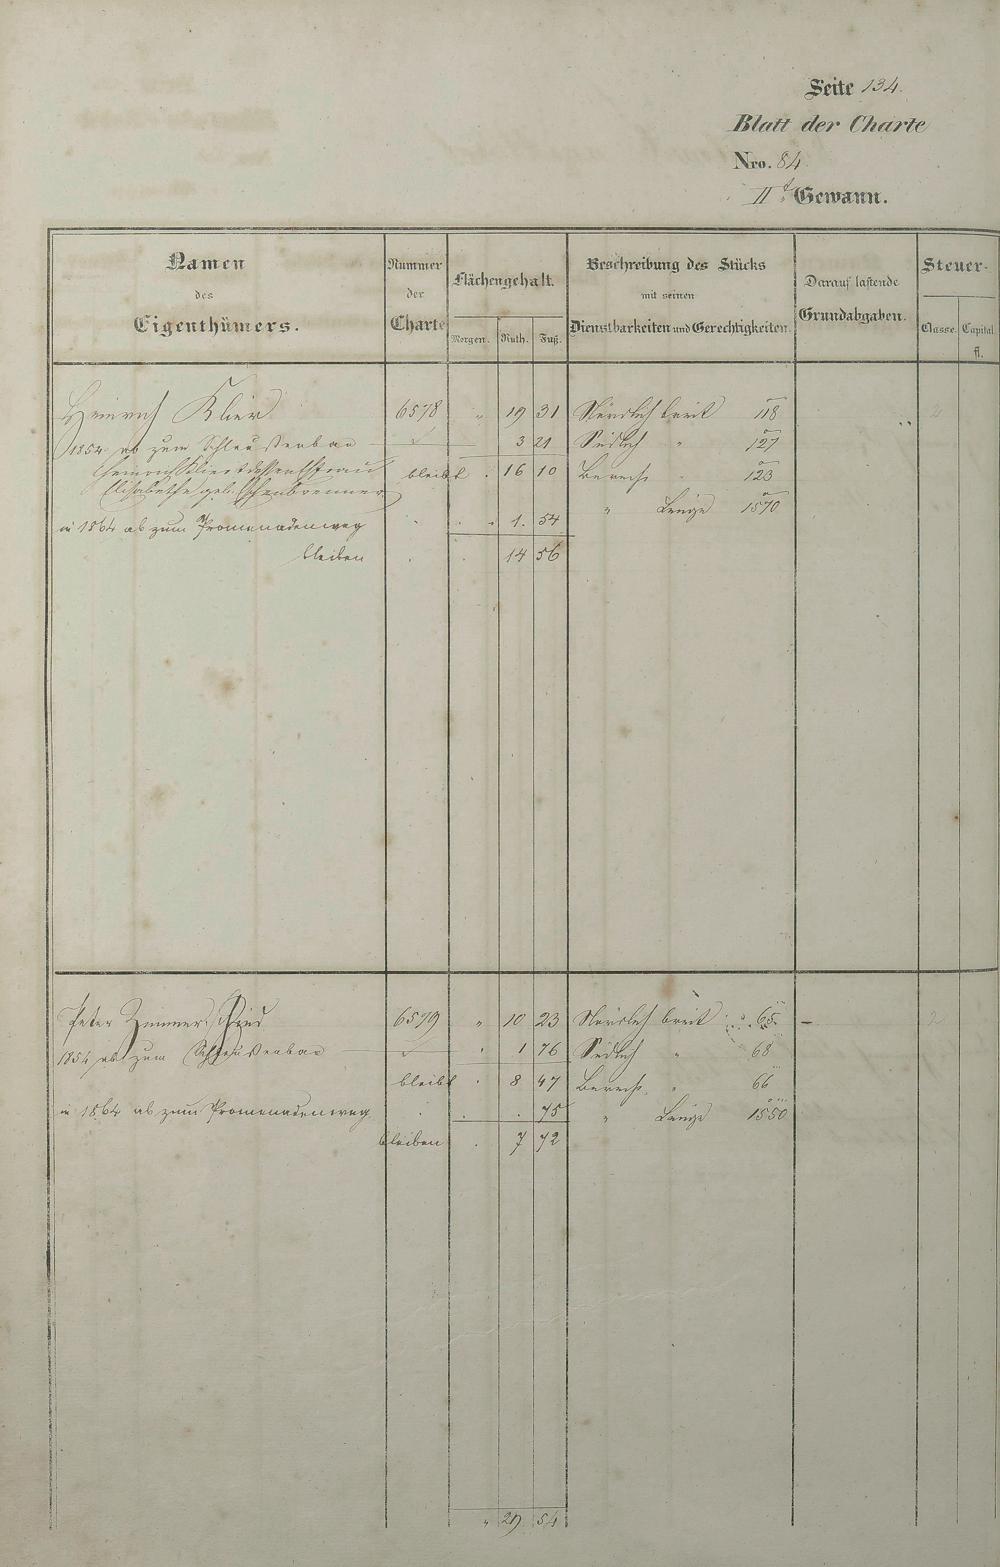 Seite 134.
Blatt der Charte
Nro. 84
IIt Gewann.
Namen des Eigenthümers.
Nummer der Charte
Flächengehalt.
Morgen. Ruth. Fuß.
Beschreibung des Stücks mit seinen Dienstbarkeiten und Gerechtigkeiten.
Darauf lastende Grundabgaben.
Steuer-
Classe. Capital fl.
Heinrich Klier 6578 " 19 31 Nördlich breit 118 2
1854 ab zum Schleußenbau 3 21 Südlich " 127
Heinrich Klier & dessen Ehefrau bleibt . 16 10 Berech. " 123
Elisabetha geb.
" Länge 1570
in 1864 ab zum Promenadenweg " 1. 54
bleiben 14 56
Peter Zimmer 6579 " 10 23 Nördlich breit 65 – 2
1854 ab zum Schleußenbau " 1 76 Südlich " 68
bleibt . 8 47 Berech. " 66
in 1864 ab zum Promenadenweg . . 75 " Länge 1550
bleiben . 7 72
" 29 54